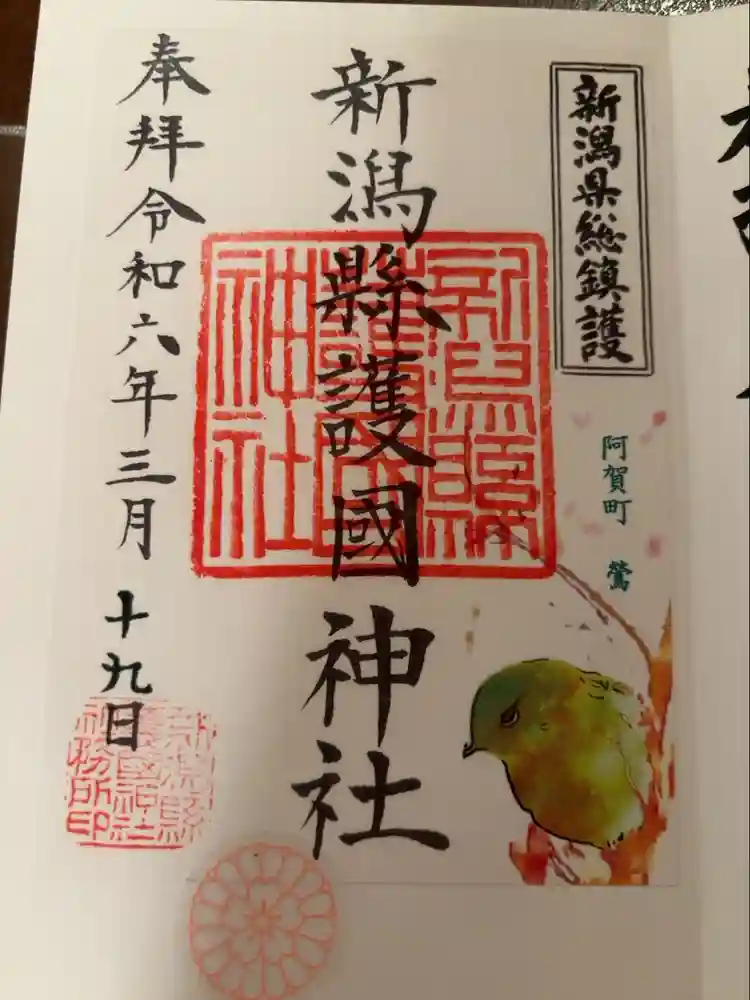 新潟県総鎮護
阿賀町 鶯
新潟縣護國神社
新潟縣護國神社
奉拝令和六年三月十九日
新潟縣護國神社社務所印